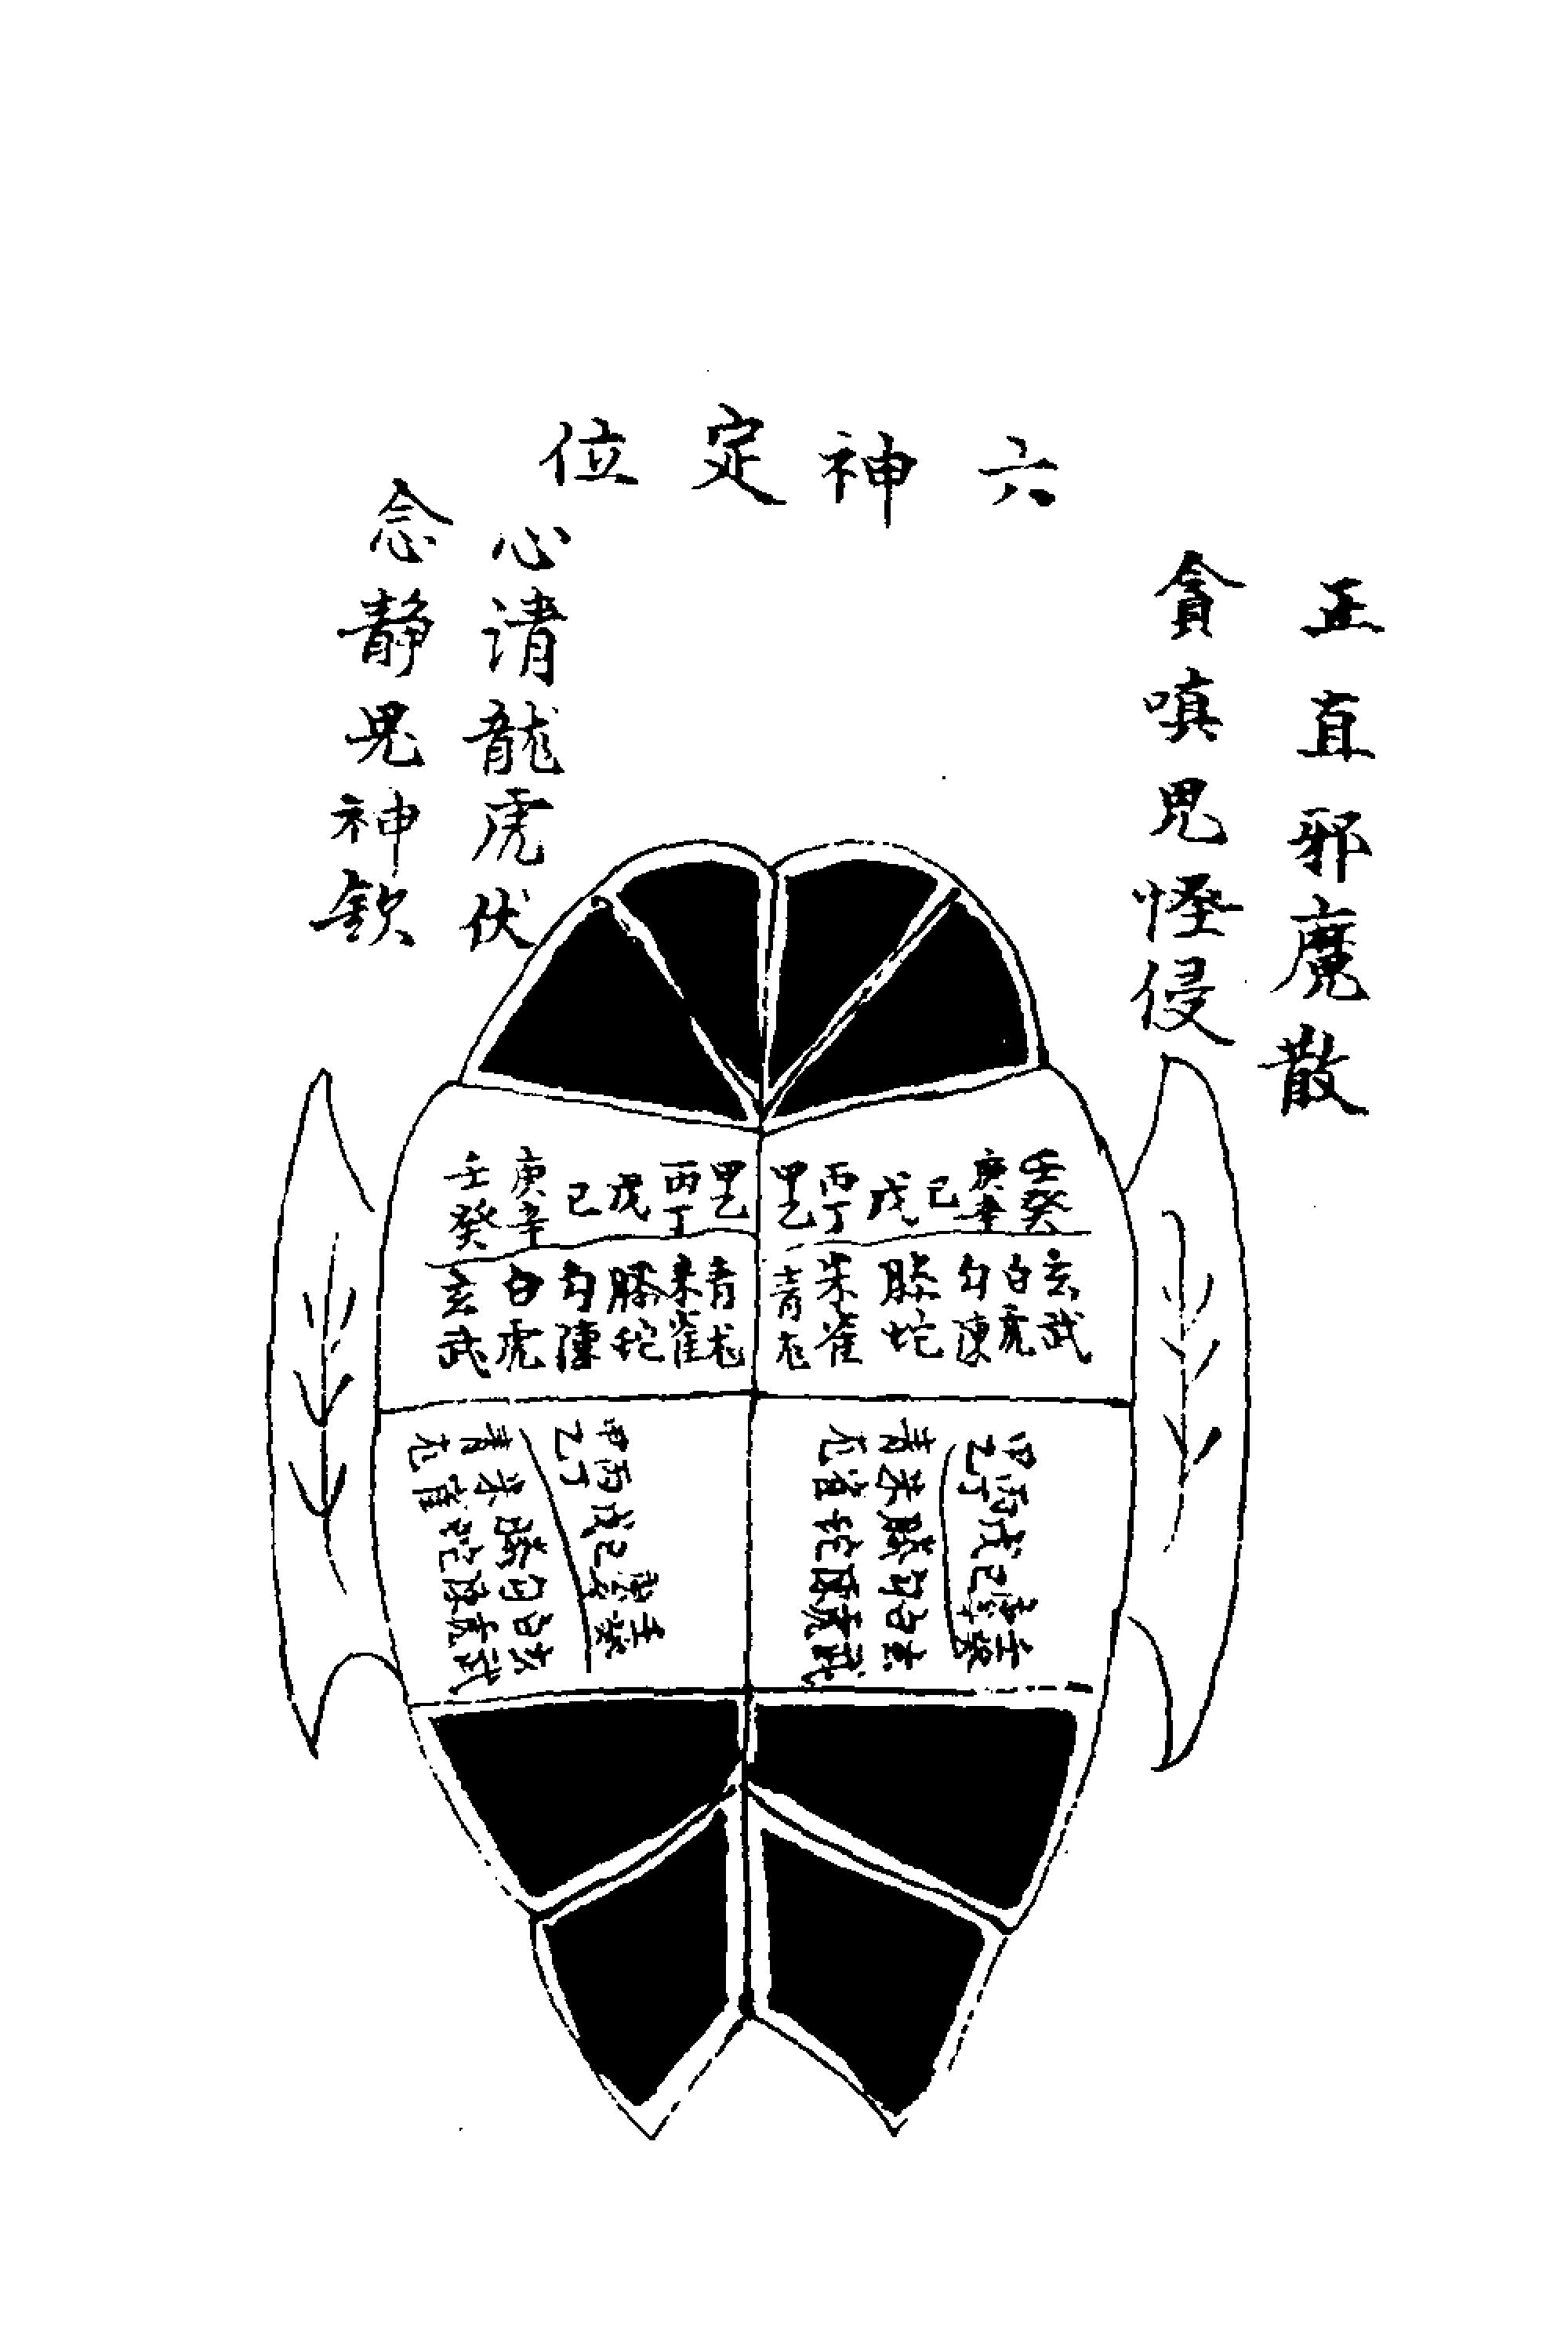 六神定位
正直邪魔散
貪嗔鬼怪侵
心清龍虎伏
念静鬼神欽
壬癸
庚辛
己
戊
丙丁
甲乙
玄武
白虎
勾陳
螣蛇
朱雀
青龙
壬癸
庚辛
己
戊
丙丁
甲乙
玄武
白虎
勾陳
螣蛇
朱雀
青龙
甲乙
丙丁
戊
己
庚辛
壬癸
青龙
朱雀
螣蛇
勾陳
白虎
玄武
甲乙
丙丁
戊
己
庚辛
壬癸
青龙
朱雀
螣蛇
勾陳
白虎
玄武